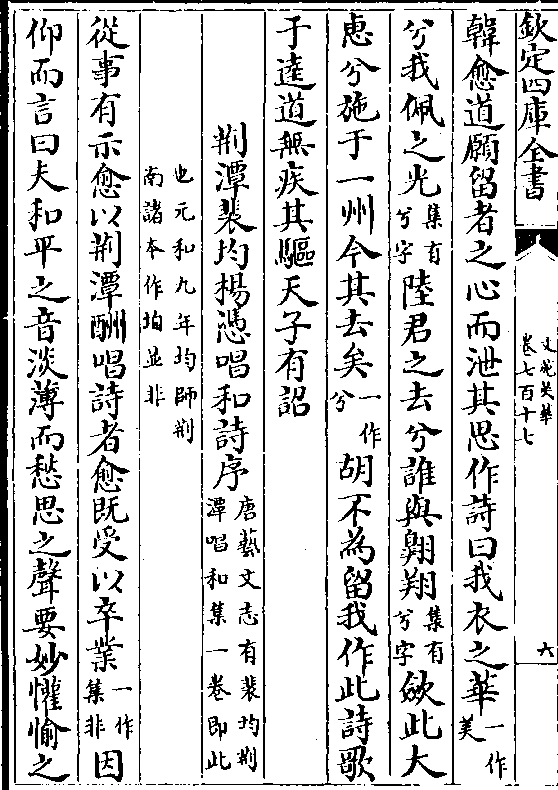 欽定四庫全書
文苑英華
卷七百十七
六
韓愈道願留者之心而泄其思作詩曰我衣之華一作美
兮我佩之光集有兮字陸君之去兮誰與翺翔集有兮字歛此大
惠兮施于一州今其去矣一作兮胡不為留我作此詩歌
于逵道無疾其驅天子有詔
荆潭裴均揚憑唱和詩序唐藝文志有裴均荆潭唱和集一卷即此
也元和九年均師荆南諸本作垍並非
從事有示愈以荆潭酬唱詩者愈既受以卒業一作集非因
仰而言曰夫和平之音淡薄而愁思之聲要妙懽愉之